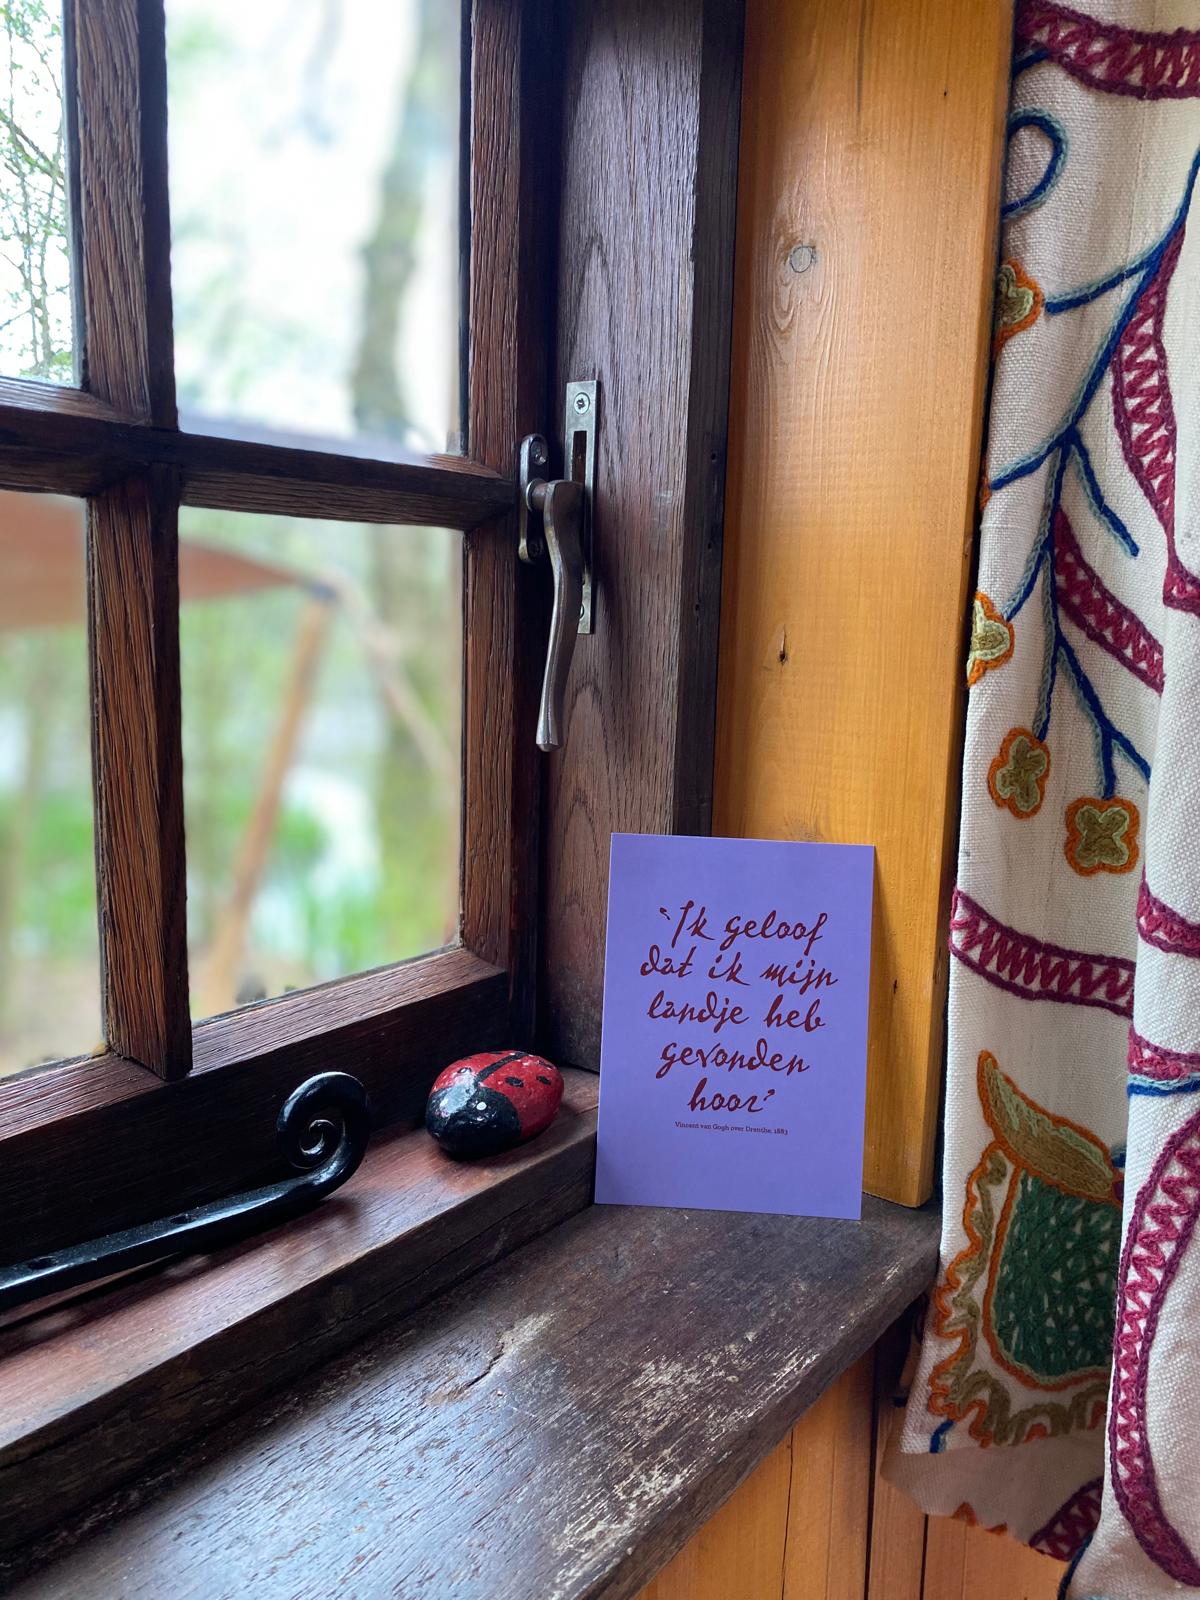 ‘Ik geloof
dat ik mijn
landje heb
gevonden
hoor’
Vincent van Gogh over Drenthe, 1883